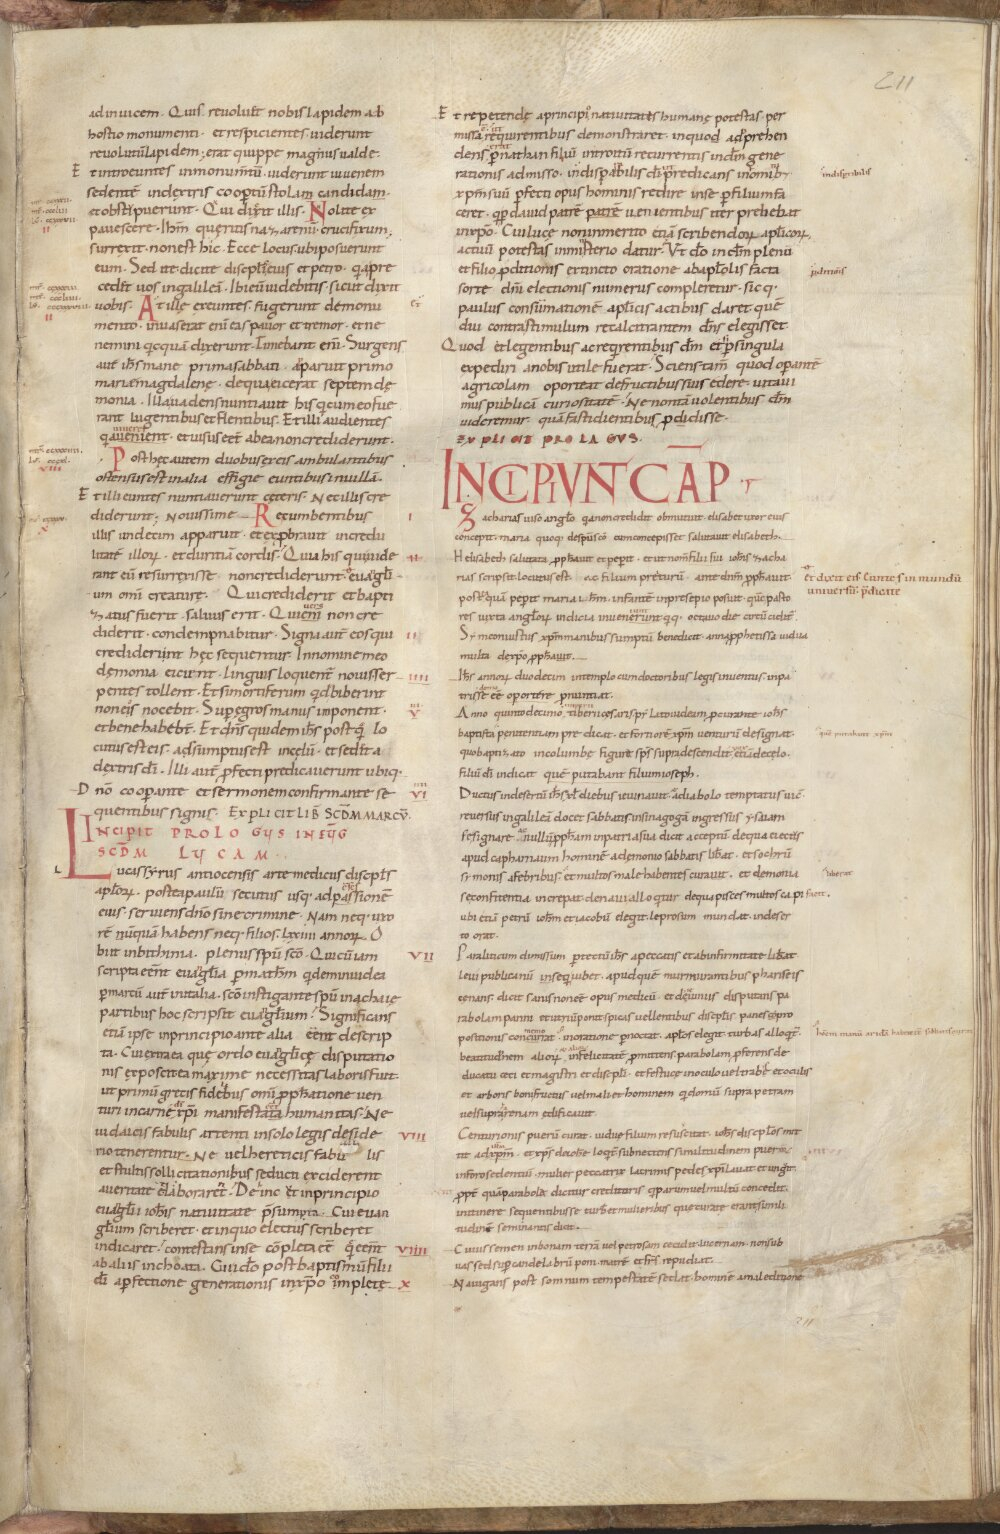 211
ad inuicem. Quis reuoluet nobis lapidem ab
hostio monumenti. et respicientes uiderunt
reuolutū lapidem; erat quippe magnus ualde.
Et introeuntes in monumtū. uiderunt iuuenem
sedentē in dextris coopertū stolam candidam.
et obstipuerunt. Qui dixit illis. Nolite ex
pauescere. Ihm queritis nazarenū crucifixum,
surrexit. non est hic. Ecce locus ubi posuerunt
eum. Sed ite dicite discipulis eius et petro. quia pre
cedet uos in galileā. Ibi eū uidebitis. sicut dixit
uobis. At illę exeuntes. fugerunt de monu
mento. inuaserat enī eas pauor et tremor. et ne
nemini quicquā dixerunt. Timebant enī. Surgens
autē ihs mane prima sabbati. apparuit primo
marie magdalenę. de qua eiecerat septem dę
monia. Illa uadens nuntiauit his qui cum eo fue
rant lugentibus et flentibus. Et illi audientes
quia uiueret
et uisus eēt ab ea non crediderunt.
Post hęc autem duobus ex eis ambulantibus
ostensus est in alia effigie euntibus in uillā.
Et illi euntes nuntiauerunt cęteris. Nec illis cre
diderunt; Nouissime Recumbentibus
illis undecim apparuit. et exprobrauit incredu
litatē illorum. et duritiā cordis. Quia his qui uide
rant eū resurrexisse. non crediderunt. euāgliū
um omī creaturę. Qui crediderit et bapti
zatus fuerit. saluus erit. Qui uero non cre
diderit. condempnabitur. Signa autē eos qui
crediderint hęc sequentur. In nomine meo
dęmonia eicient. linguis loquent nouis ser
pentes tollent. Et si mortiferum quid biberint
non eis nocebit. Super ęgros manus imponent.
et bene habebt. Et dns quidem ihs postquā lo
cutus est eis. adsumptus est in cęlū. et sedit a
dextris dī. Illi autē profecti predicauerunt ubiq.
Dno cooperante et sermonem confirmante se
quentibus signis. EXPLICIT LIB SCDM MARCU.
INCIPIT PROLOGUS IN EUG
SCDM LUCAM.
Lucas syrus antiocensis arte medicus discipls
aplorum. postea paulū secutus usq ad passionē
eius. seruiens dno sine crimine. Nam neq uxo
rē nūquā habens neq filios. lxxiiii annorum O
biit in bithinia. plenus spū scō. Qui cū iam
scripta eent euāglia per mathm quidem in iudea
per marcū autē in italia. scō instigante spū in achaię
partibus hoc scripsit euāglium. Significans
etiā ipse in principio ante alia eent descrip
ta. Cui extra ea quę ordo euāglicę disputatio
nis exposcit ea maxime necessitas laboris fuit.
ut primū grecis fidelibus omī pphetatione uen
turi in carnē xpi manifestata humanitas. Ne
iudaicis fabulis attenti in solo legis deside
rio tenerentur. Ne uel hereticis fabu lis
et stultis sollicitationibus seducti exciderent
a ueritate elaboraret. Dehinc et in principio
euāglii iohis natiuitate presumpta. Cui euan
glium scriberet. et in quo electus scriberet
indicaret. contestans in se completa eē que eent
ab aliis inchoata. Cui ido post baptismū filii
dī a perfectione generationis in xpo impletę
Et repetendę a principio natiuitatis humanę potestas per
missa. requirentibus demonstraret. in quod adprehen
dens per nathan filiū introitū recurrentis in dm gene
rationis admisso. indisparabilis di predicans in hominib
xpm suū perfecti opus hominis redire in se per filium fa
ceret. qui per dauid patrē uenientibus iter prebebat
in xpo. Cui lucę non inmerito etiā scribendorum aplicorum
actuū potestas in ministerio datur. Ut do in dm pleno
et filio perditionis extincto oratione ab aplolis facta
sorte dni electionis numerus compleretur. sic q
paulus consummationē aplicis actibus daret. quē
diu contra stimulum recalcitrantem dns elegisset
Quod et legentibus ac requirentibus dm et si per singula
expediri a nobis utile fuerat. Sciens tam quod operantē
agricolam oporteat de fructibus suis edere. uitaui
mus publicā curiositatē. Ne non tā uolentibus dm
uideremur. quā fastidientibus prodidisse.
EXPLICIT PROLAGUS.
INCIPIUNT CAP
I
Zacharias uiso anglo. quia non credidit obmutuit. elisabet uxor eius
concepit. maria quoq desponsō cum concepisset salutauit elisabeth.
II
H elisabeth salutata pphauit et peperit. et ut nom filii sui iohis zacha
rias scripsit locutus est. ac filium preiturū ante dnm pphauit.
postquā peperit maria ihm. infantē in presepio posuit. quē pasto
res iuxta anglorum indicia inuenerunt. octauo die circūcidit.
III
Symeon iustus xpm manibus sumptū benedicit. anna pphetissa uidua
multa de xpo pphauit.
IIII
Ihs annorum duodecim in templo cum doctoribus legis inuentus. in pa
tris se eē oportere pnuntiat.
V
Anno quintodecimo tiberii cęsaris pr iudeam procurante iohs
baptista penitentiam predicat. et fortiorē xpm uenturū designat.
quo baptizato in columbe figure sps supra descendit. etiā de cęlo.
filiū dī indicat quē putabant filium ioseph.
VI
Ductus in desertū ihs xl diebus ieiunauit. a diabolo temptatus uic.
reuersus in galileā docet sabbatis in sinagoga ingressus ysaiam
se signare. nullū ppham in patria sua dicit acceptū de qua eiectus
apud capharnaum hominē a demonio sabbatis liberat. et socrū
simonis a febribus. et multos male habentes curauit. et demonia
se confitentia increpat. de naui alloquitur de qua pisces multos capi facit.
ubi etiā petrū iohm et iacobū elegit. leprosum mundat. in deser
to orat.
VII
Paraliticum dimissum per tectū ihs a peccatis et ab infirmitate liberat
leui publicanū insequi iubet. apud quē murmurantibus phariseis
cenans. dicit sanis non eē opus medicū. et de ieiunius disputans pa
rabolam panni et utriū ponit. spicas uellentibus disciplis panes pro
positionis concurrat. in oratione pernoctat. aplos elegit. turbas alloquit.
beatitudinem aliorum infelicitatē premittens parabolam proferens de
ducatu ceci et magistri et discipli. et festucę in oculo uel trabę et oculis
et arboris boni fructus uel mali et hominem qui domū supra petram
uel supra arenam edificauit.
VIII
Centurionis puerū curat. uiduę filium resuscitat. iohs disciplos mit
tit ad xpm. et xps de iohe loquit. subnectens similitudinem puerorum
in foro sedentiū. mulier peccatrix lacrimis pedes xpi lauat et ungit.
propter quā parabolā ductus creditoris qui parum uel multū concedit.
in itinere sequentibus se turbis et mulieribus que curate erant simili
tudinē seminantis dicit.
VIIII
Cuius semen in bonam terrā uel petrosam cecidit. lucernam non sub
uas sed super candelabrū poni. matrē et frs repudiat.
X
Nauigans post somnum tempestatē sedat. hominē a maledictione
indispribilis
pditionis
et dixit eis Euntes in mundū
uniuersū. predicate
quē putabant xpm
liberat
211